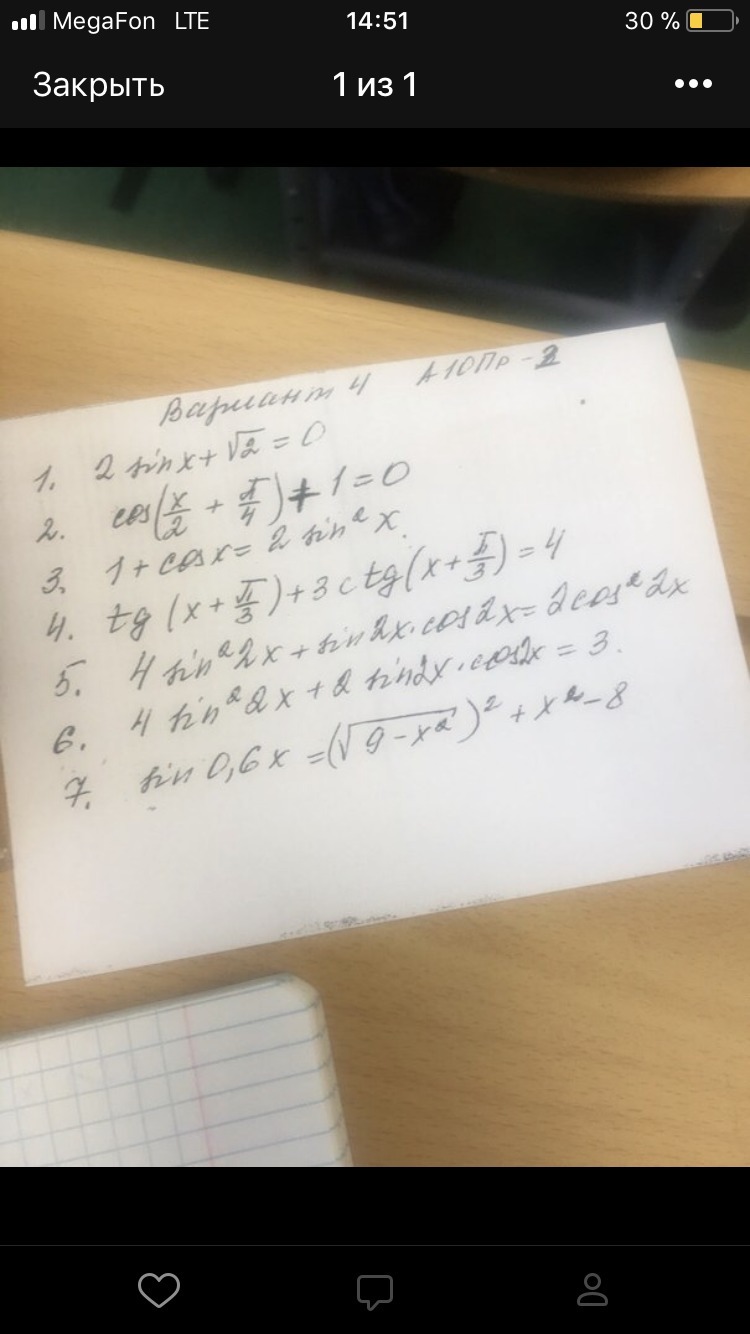 MegaFon LTE 14:51 30 %
Закрыть 1 из 1
Вариант 4 А10Пр-2
1. 2 sin x + √2 = 0
2. cos(x/2 + π/4) + 1 = 0
3. 1 + cos x = 2 sin² x.
4. tg (x + π/3) + 3 ctg (x + π/3) = 4
5. 4 sin² 2x + sin 2x · cos 2x = 2 cos² 2x
6. 4 sin² 2x + 2 sin 2x · cos 2x = 3.
7. sin 0,6x = (√9 - x²)² + x² - 8